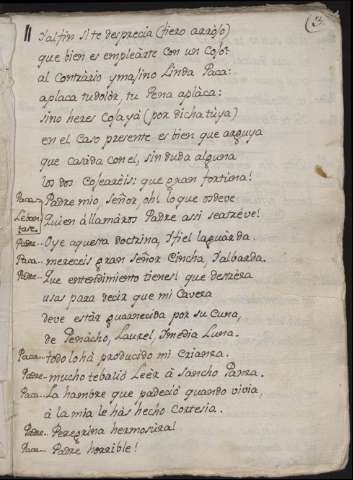 (3.
Y al fin si te desprecia (fiero arrojo)
que bien es empleàrte con un Cojo:
al Contràrio ymajino Linda Paca:
aplaca tu dolòr, tu Pena aplàca:
sino heres Cosa yà (por dicha tùya)
en el Caso presente es bien que arguya
que Casàda con el, sin duda alguna
los dos Cojearèis: que gran fortùna!
Paca. Padre mio, Señor, oh! lo que os deve
Lebantase. Quien à llamàros Padre assi se atrève!
Padre. Oye aquesta doctrina, y fiel la guàrda.
Paca. mereceis gran Señor Cincha, y albarda.
Padre. Que entendimiento tienes! que
usas para decir que mi Cavera
deve estàr guarnecida por su Cuna,
de Penàcho, Laurel, y media Luna.
Paca. todo lo hà producido mi Crianza.
Padre. mucho te baliò Leèr à Sancho Panza.
Paca. La hambre que padeciò quando vivia,
à la mia le hàs hecho Cortesia.
Padre. Peregrina hermosùra!
Paca. Padre horrible!